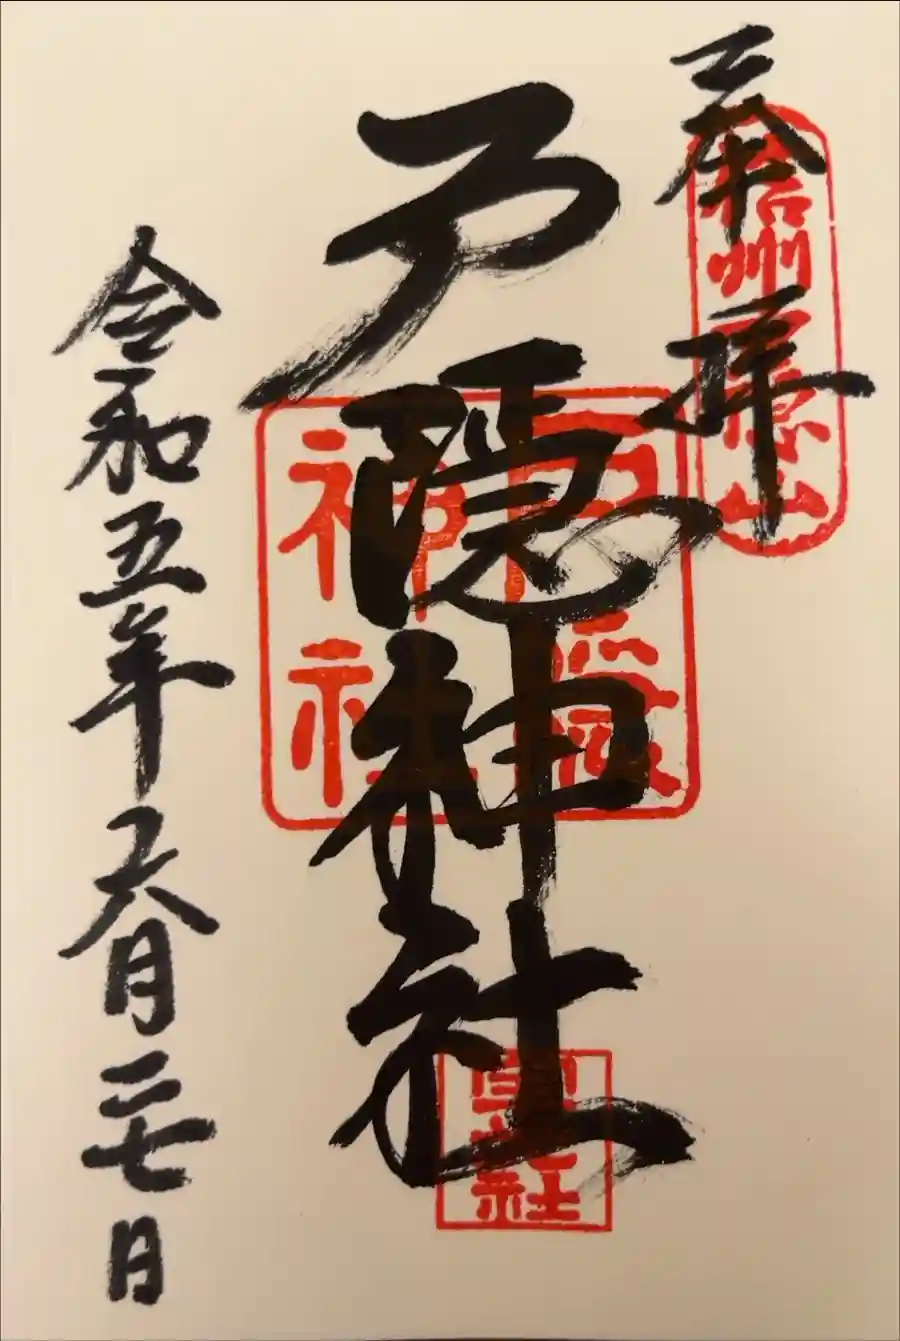 奉拝
信州戸隠山
戸隠神社
戸隠神社
寶光社
令和五年六月二七日